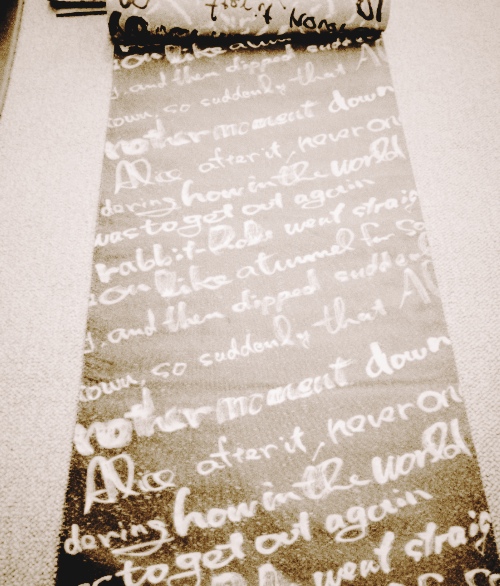 on like a tunn
, and then dipped sudde
own, so suddenly that A
nother moment down
Alice after it, never on
dering how in the world
was to get out again
rabbit-hole went straig
on like a tunnel for so
, and then dipped sudden
own, so suddenly that Al
nother moment down
Alice after it, never on
dering how in the world
s to get out again
went straig